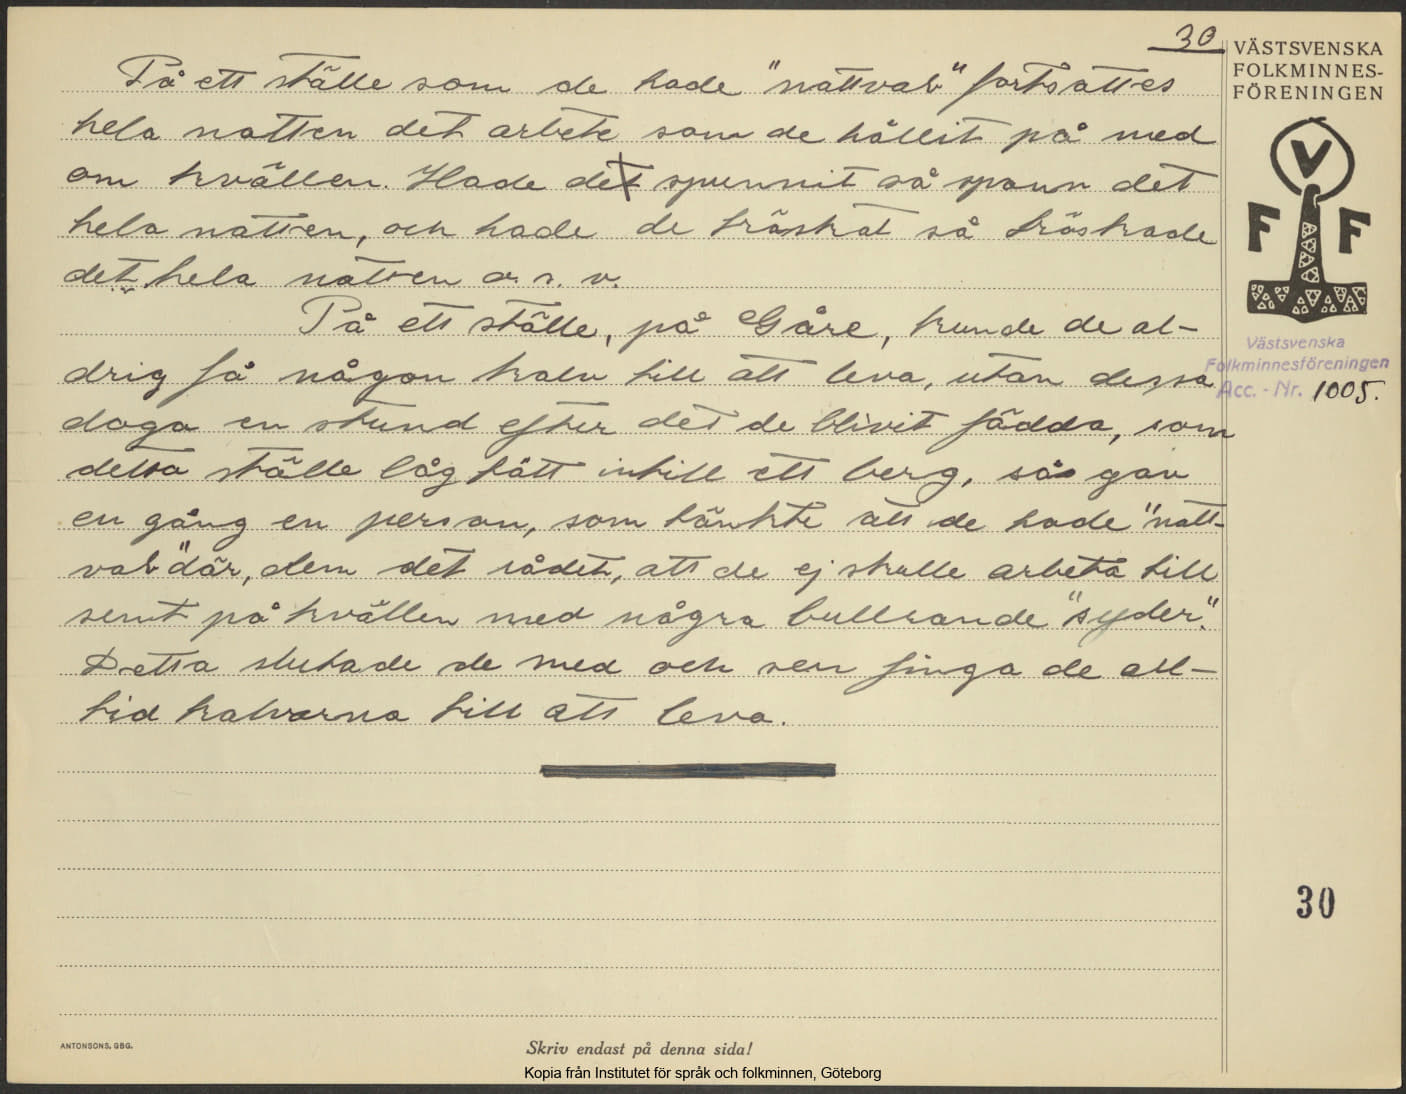 30
På ett ställe som de hade "nattvab" fortsattes
hela natten det arbete som de hållit på med
om kvällen. Hade det spunnit så spann det
hela natten, och hade de tröskat så tröskade
det hela natten o. s. v.
På ett ställe, på Gåre, kunde de al-
drig få någon kalv till att leva, utan dessa
dogo en stund efter det de blivit födda, som
detta ställe låg tätt intill ett berg, så gav
en gång en person, som tänkte att de hade "natt-
vab" där, dem det rådet, att de ej skulle arbeta till
sent på kvällen med några bullrande "syder".
Detta slutade de med och sen finga de all-
tid kalvarna till att leva.
VÄSTSVENSKA
FOLKMINNES-
FÖRENINGEN
V
F F
Västsvenska
Folkminnesföreningen
Acc. - Nr. 1005.
30
ANTONSONS, GBG.
Skriv endast på denna sida!
Kopia från Institutet för språk och folkminnen, Göteborg